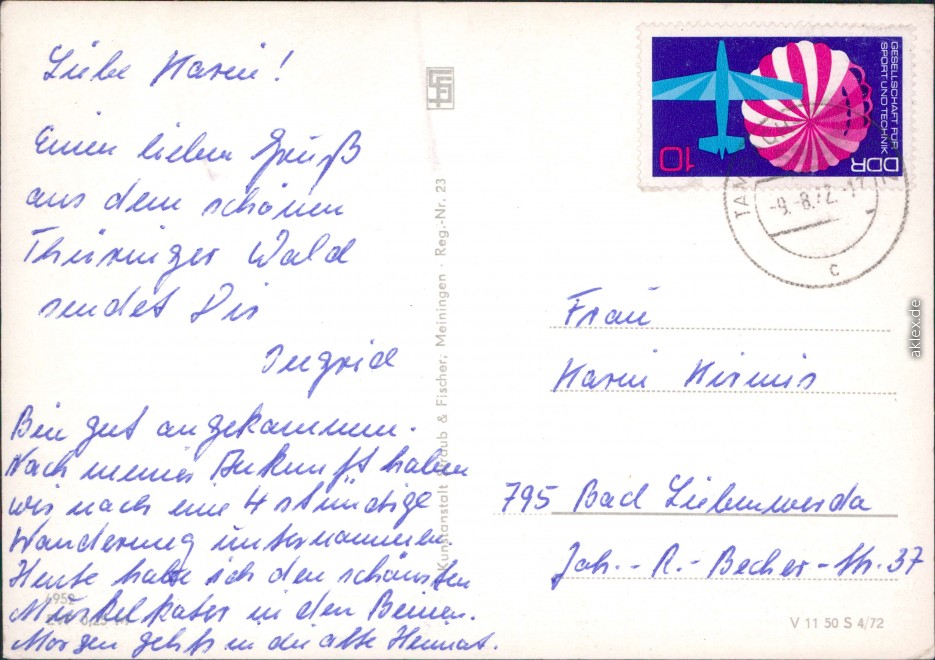 Liebe Karin!
Einen lieben Gruß
aus dem schönen
Thüringer Wald
sendet Dir
Ingrid
Bin gut angekommen.
Nach meiner Ankunft haben
wir noch eine 4 stündige
Wanderung unternommen.
Heute habe ich den schönsten
Muskelkater in den Beinen.
Morgen gehts in die alte Heimat.
4952
Kunstanstalt Straub & Fischer, Meiningen · Reg.-Nr. 23
GESELLSCHAFT FÜR
SPORT UND TECHNIK
DDR
10
-9.-8.72.-17
c
Frau
Karin Kirmis
795 Bad Liebenwerda
Joh.-R.-Becher-Str. 37
V 11 50 S 4/72
aklex.de